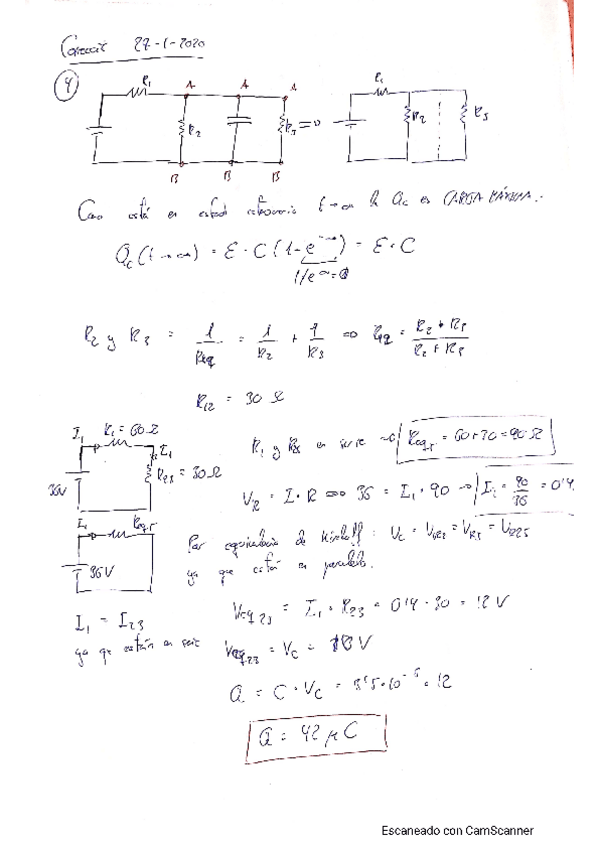 Corrección 27-1-2020
4
R1 A A A R1
R2 R3 => R2 R3
B B B
Como está en estado estacionario t→∞ la Qc es CARGA MÁXIMA.
Qc (t→∞) = E·C (1-e^-∞) = E·C
1/e^∞ = 0
R2 y R3 = 1/Req = 1/R2 + 1/R3 => Req = R2 * R3 / R2 + R3
R12 = 30 Ω
I1 R1 = 60Ω I1
R23 = 30Ω
36V
R1 y R23 en serie → Req,T = 60+30 = 90 Ω
VR = I·R => 36 = I1·90 → I1 = 90/36 = 0'4
I1 Req,T
36V
Por equivalencia de Kirchoff: Vc = VR2 = VR3 = VR23
ya que están en paralelo.
I1 = I23
ya que están en serie
Veq23 = I1·R23 = 0'4·30 = 12 V
Veq23 = Vc = 12 V
Q = C·Vc = 3'5·10^-6·12
Q = 42 μC
Escaneado con CamScanner